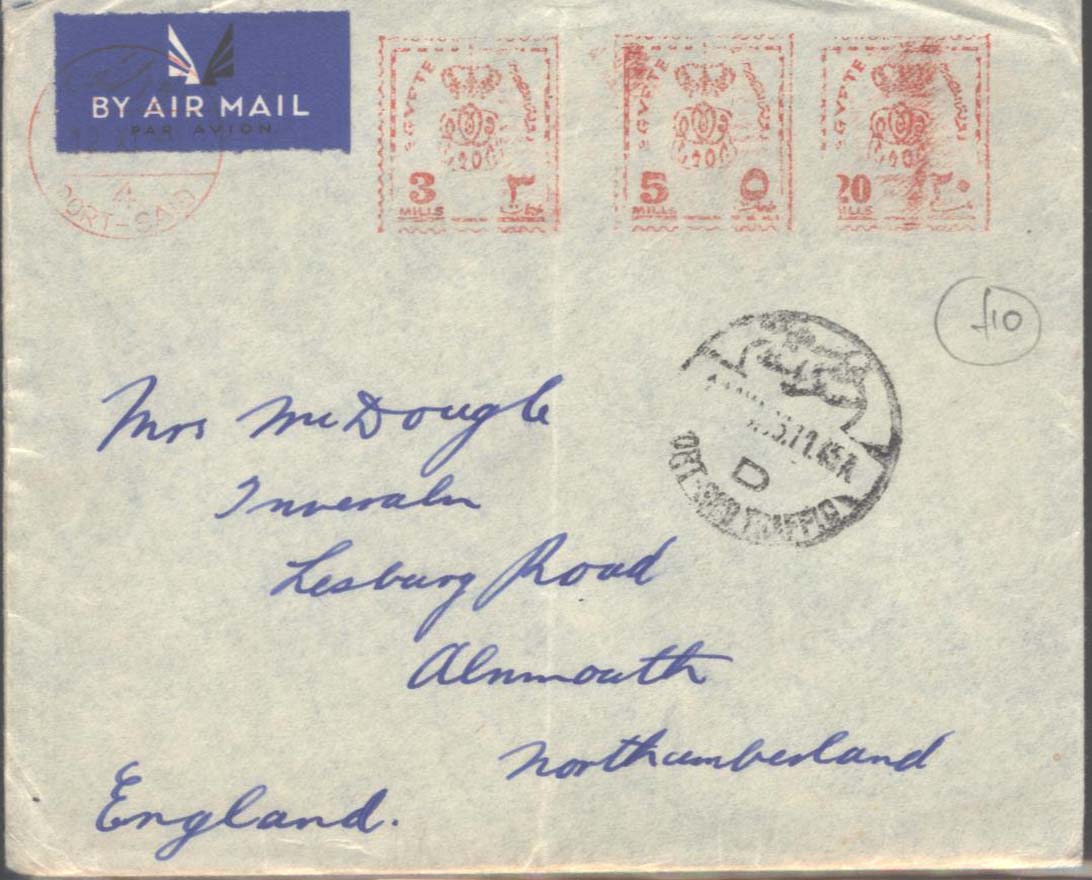 BY AIR MAIL
PAR AVION
4
PORT-SAID
EGYPTE
3 ٣
MILLS
EGYPTE
5 ٥
MILLS
EGYPTE
20 ٢٠
MILLS
£10
D
PORT-SAID TRAFFIC
Mrs McDougle
Lesbury Road
Alnmouth
Northumberland
England.